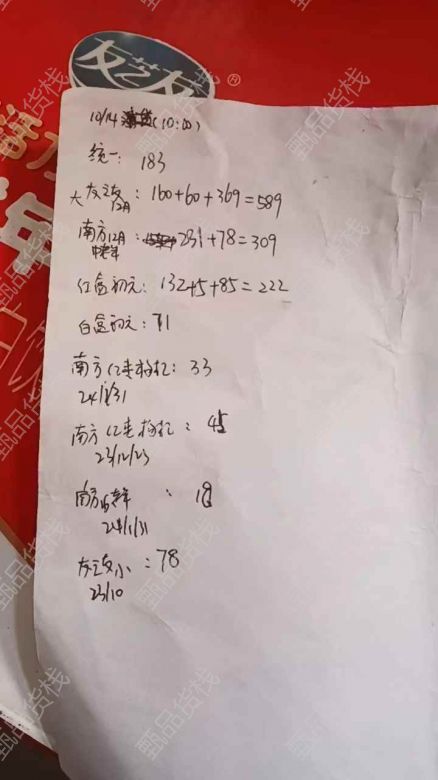 友芝友®
10/14 (10:00)
统一: 183
大友芝友: 160+60+369=589
12月
南方12月: 231+78=309
中老年
红盒初元: 132+5+85=222
白盒初元: 71
南方红枣枸杞: 33
24/1/31
南方红枣枸杞: 45
23/12/23
南方中老年: 18
24/1/31
友芝友小: 78
23/10
甄品货栈